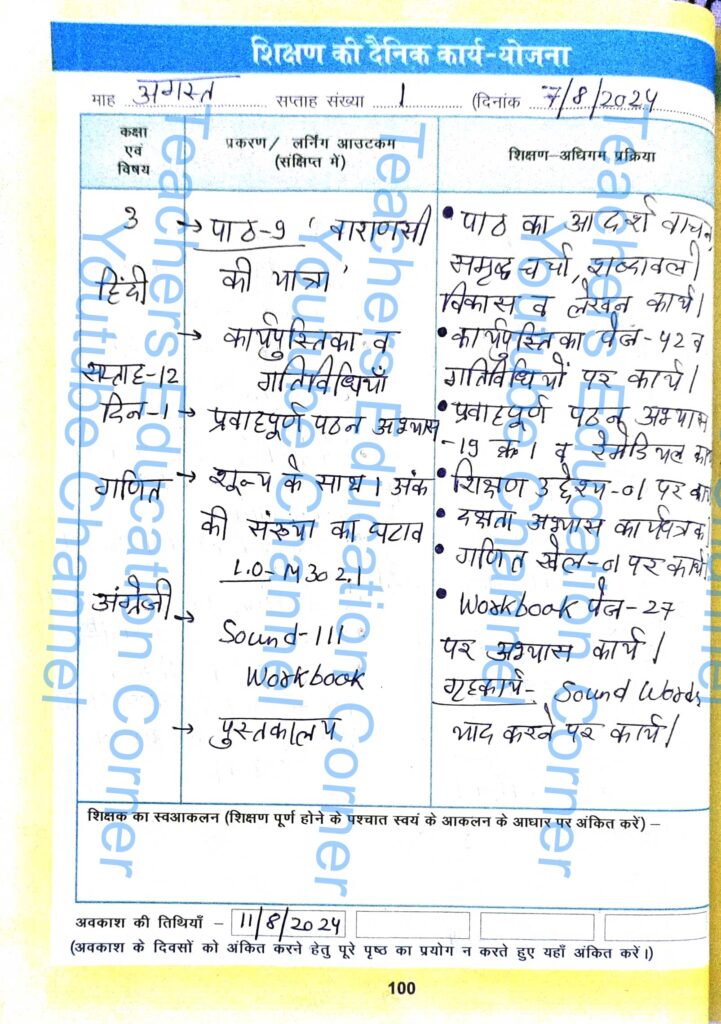 शिक्षण की दैनिक कार्य-योजना
माह अगस्त सप्ताह संख्या 1 (दिनांक 7/8/2024
कक्षा एवं विषय
प्रकरण / लर्निंग आउटकम (संक्षिप्त में)
शिक्षण-अधिगम प्रक्रिया
3
हिंदी
सप्ताह-12
दिन-1
गणित
अंग्रेजी
→ पाठ-9 'वाराणसी
की यात्रा'
→ कार्यपुस्तिका व
गतिविधियाँ
→ प्रवाहपूर्ण पठन अभ्यास
→ शून्य के साथ 1 अंक
की संख्या का घटाव
L.O-M302.1
→ Sound-111
Workbook
→ पुस्तकालय
• पाठ का आदर्श वाचन,
समृद्ध चर्चा, शब्दावली
विकास व लेखन कार्य।
• कार्यपुस्तिका पेज-42 व
गतिविधियों पर कार्य।
• प्रवाहपूर्ण पठन अभ्यास
-19 क्र॰1 व रेमेडियल
• शिक्षण उद्देश्य-01 पर
• दक्षता अभ्यास कार्यपत्रक
• गणित खेल-01 पर कार्य।
• Workbook पेज-27
पर अभ्यास कार्य।
गृहकार्य- Sound Words
याद करने पर कार्य।
Teachers Education Corner
Youtube Channel
Teachers Education Corner
Youtube Channel
शिक्षक का स्वआकलन (शिक्षण पूर्ण होने के पश्चात स्वयं के आकलन के आधार पर अंकित करें) –
अवकाश की तिथियाँ – 11/8/2024
(अवकाश के दिवसों को अंकित करने हेतु पूरे पृष्ठ का प्रयोग न करते हुए यहाँ अंकित करें।)
100